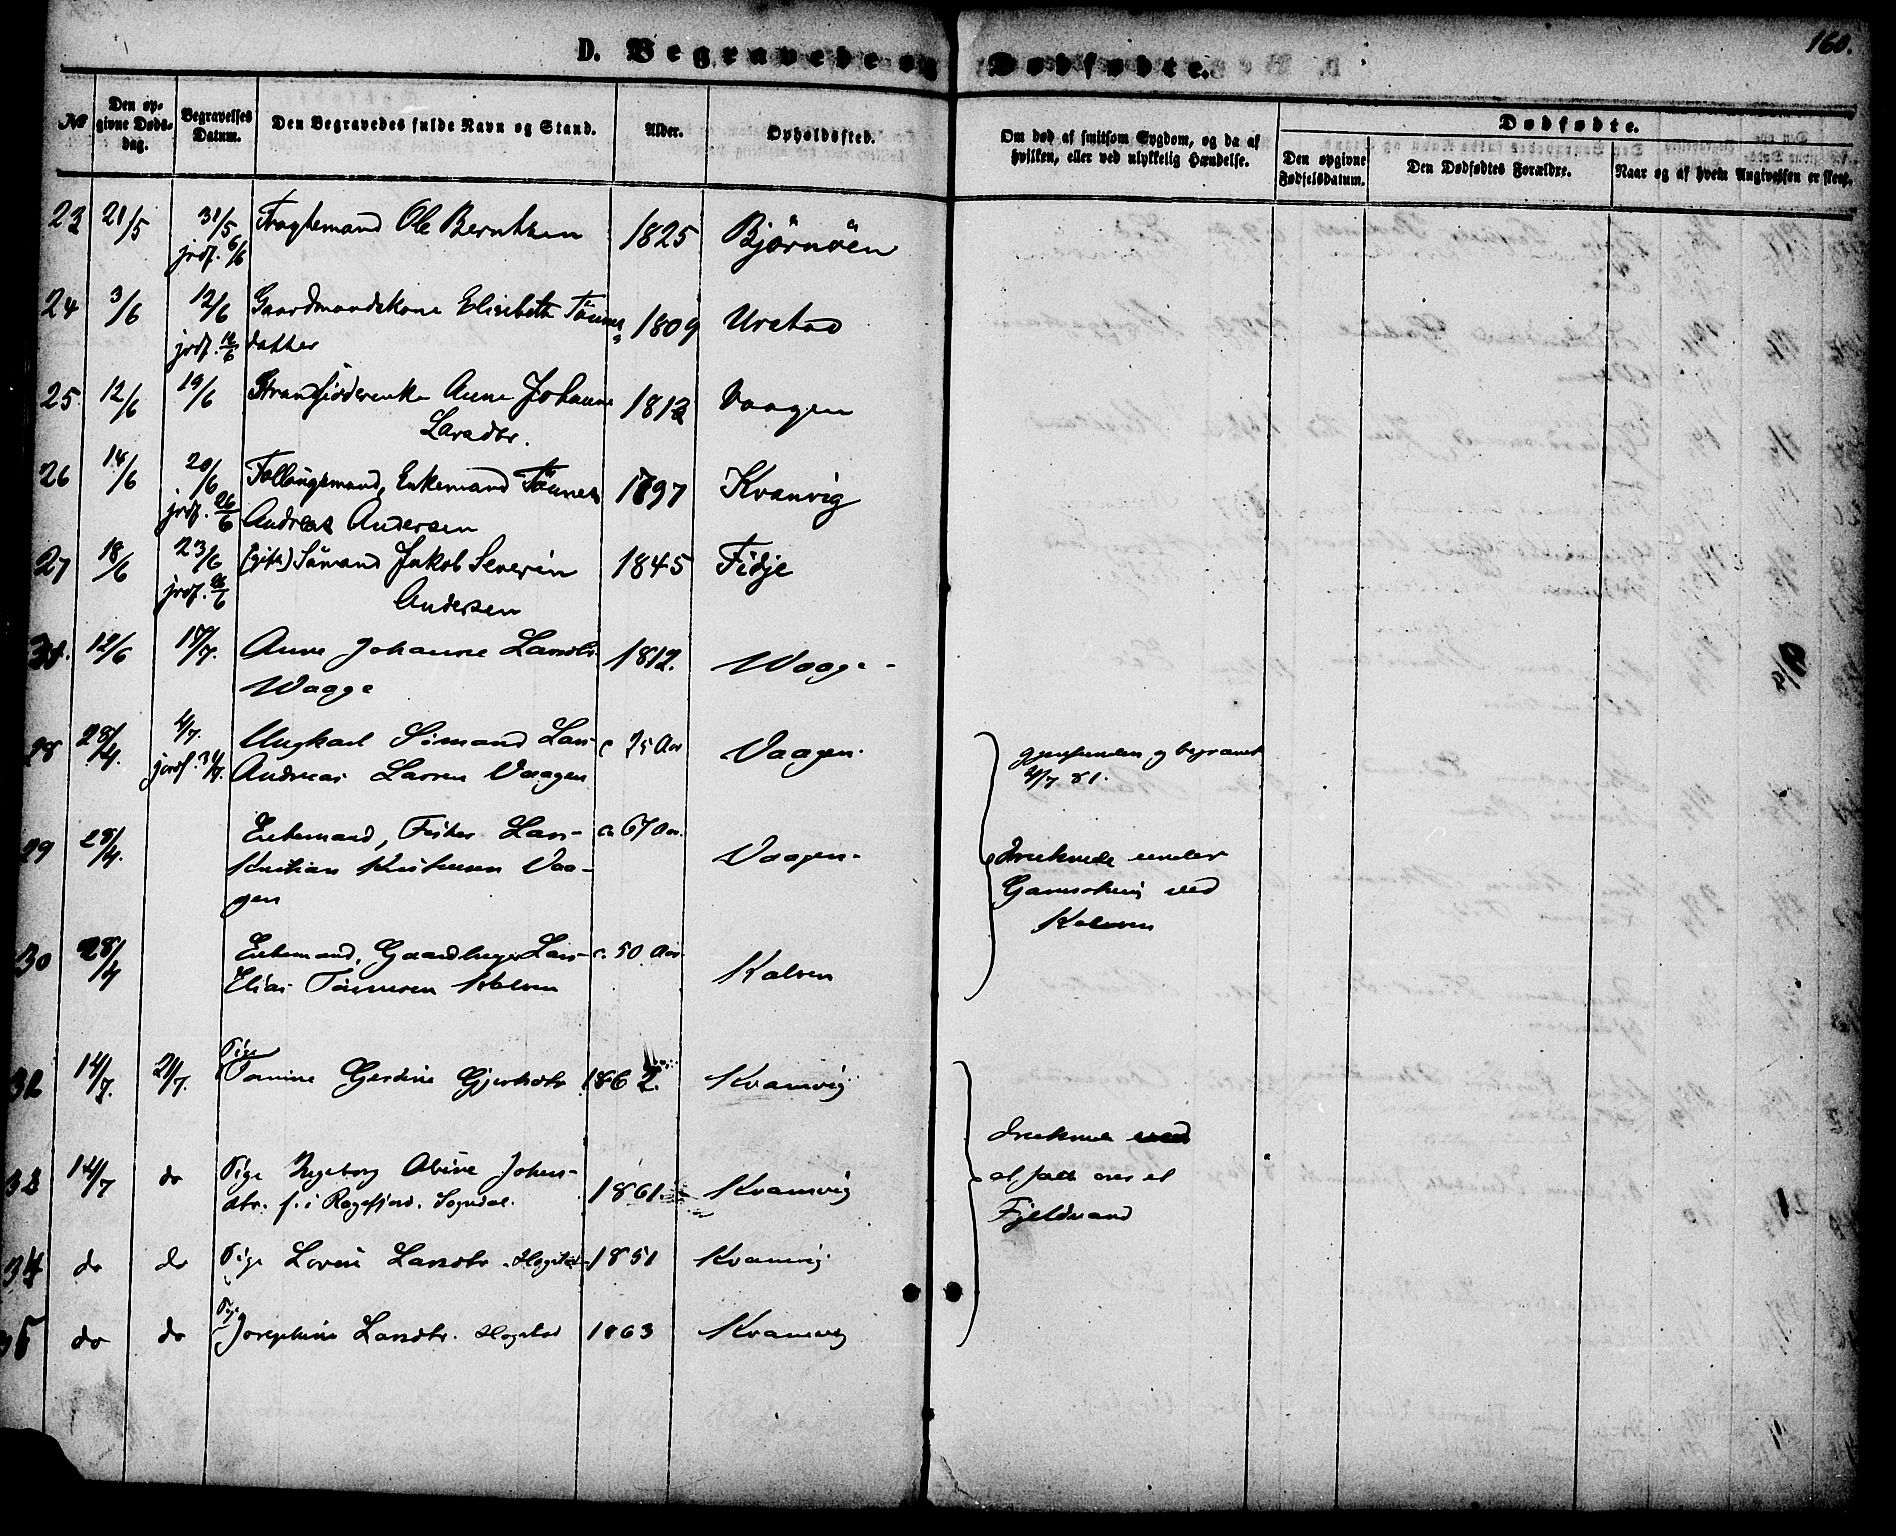 160.
D. Begravede og Dødfødte.
No
Den opgivne Dødsdag.
Begravelses Datum.
Den Begravedes fulde Navn og Stand.
Alder.
Opholdssted.
Om død af smitsom Sygdom, og da af hvilken, eller ved ulykkelig Hændelse.
Dødfødte.
Den opgivne Fødselsdatum.
Den Dødfødtes Forældre.
Naar og af hvem Angivelsen er skeet.
23 21/5 31/5 Ole Berntsen 1825 Bjørnøen
jrdf. 6/6
24 3/6 12/6 Gaardmandskone Elisebeth Tönnes 1809 Urstad
jrdf. 16/6 datter
25 12/6 19/6 Anne Johanne 1812 Vaagen
Larsdtr.
26 14/6 20/6 Enkemand Tönnes 1797 Kvanvig
jrdf. 26/6 Andreas Andersen
27 18/6 23/6 (gift) Sömand Jakob Severin 1845 Fidje
jrdf. 26/6 Andersen
31. 12/6 17/7. Anne Johanne Larsdtr. 1812. Waage
Waage
28 28/4. 4/7. Ungkarl Sömand Lars c 25 Aar Vaagen.
jordf. Andreas Larsen Vaagen
gjenfunden og begravet
4/7 81.
29 28/4. Enkemand, Fisker Lars c. 67 Aar. Vaagen.
Kristian Kristensen Vaa-
gen
druknede under
ved
Kalven
30 28/4 Enkemand, Gaardbruger Lars c. 50 Aar Kalven
Elias Tönnesen Kalven
32 14/7. 21/7. Pige
Tomine Gerdine Gjertsdtr 1862. Kvamvig
druknede ved
at falde over et
Fjeldvand
33 14/7 do Pige Ingeborg Abine Johns- 1861. Kvamvig
dtr. f. i Rægefjord. Sogndal.
34 do do Pige Lovise Larsdtr. Hogstad 1851 Kvamvig
35 do do Pige
Josephine Larsdtr. Hogstad 1863 Kvamvig